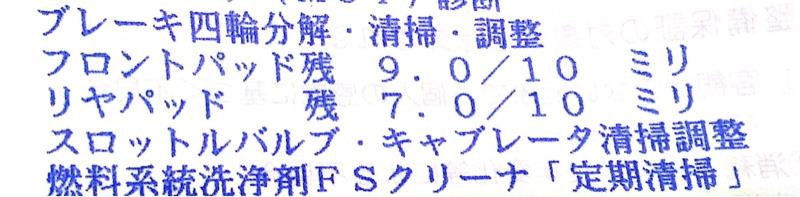 診断
ブレーキ四輪分解・清掃・調整
フロントパッド残 9.0/10 ミリ
リヤパッド 残 7.0/10 ミリ
スロットルバルブ・キャブレータ清掃調整
燃料系統洗浄剤FSクリーナ「定期清掃」